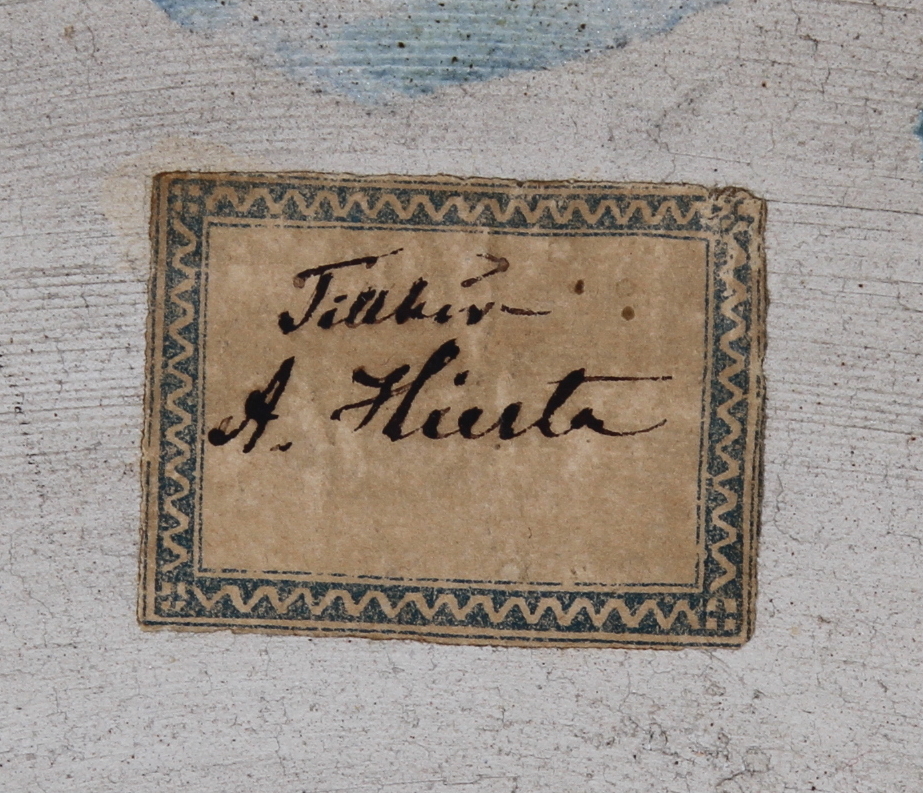 Tillhör
A. Hierta